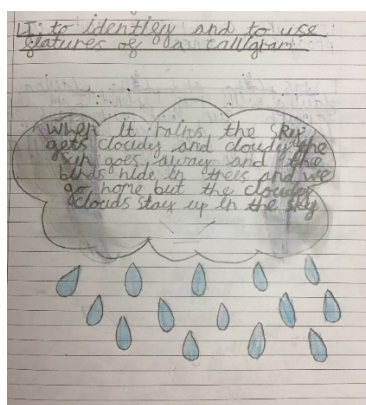 LI: to identify and to use
features of a calligram
When it rains the sky
gets cloudy and cloudy the
sun goes away and the
birds hide in trees and we
go home but the cloudy
clouds stay up in the sky